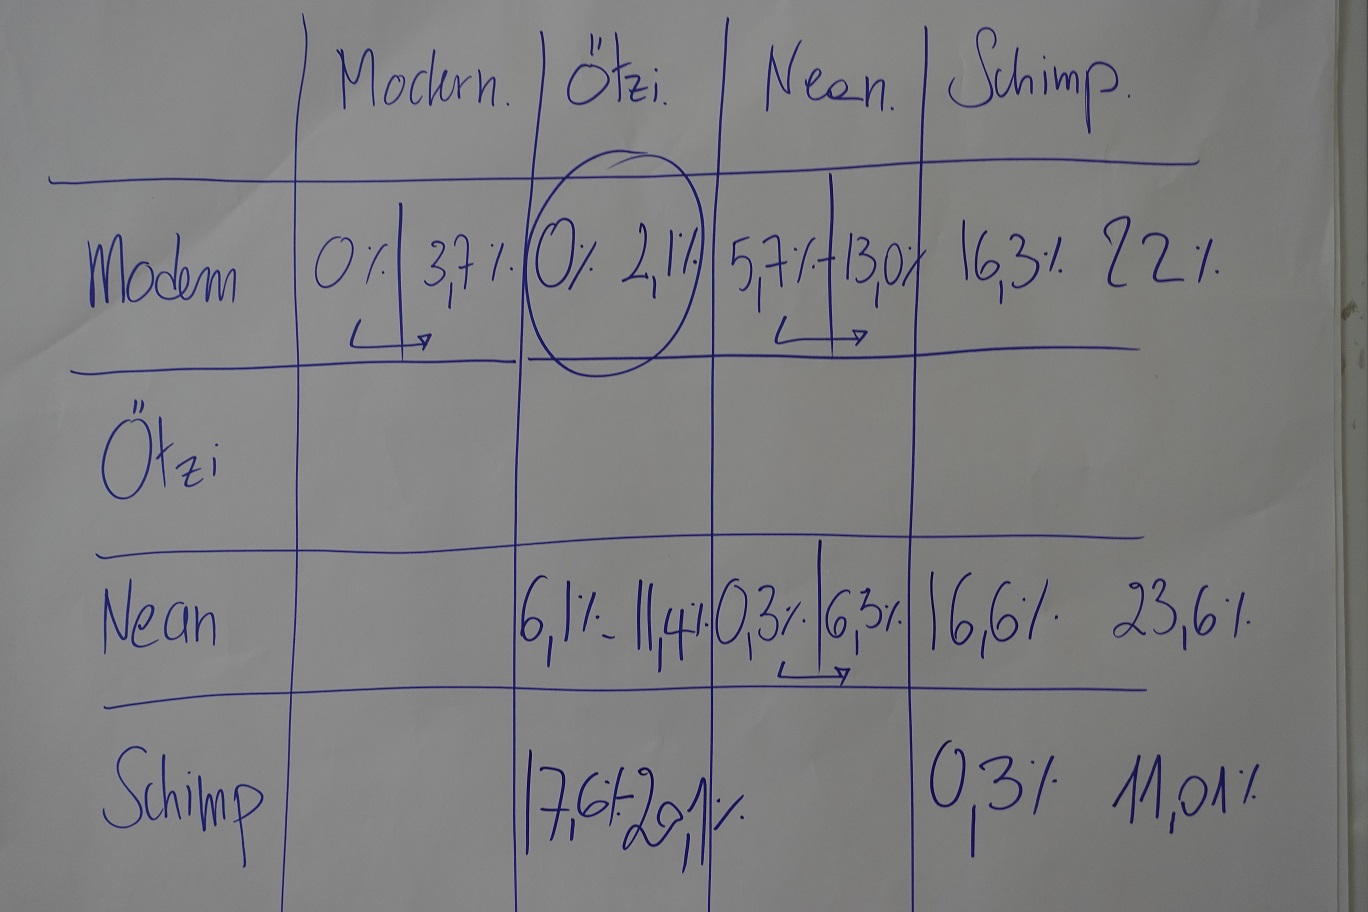 Modern. Ötzi. Nean. Schimp.
Modern 0% 3,7% 0% 2,1% 5,7%-13,0% 16,3% 22%
Ötzi
Nean 6,1%-11,4% 0,3% 6,3% 16,6% 23,6%
Schimp 17,6%-20,1% 0,3% 11,01%